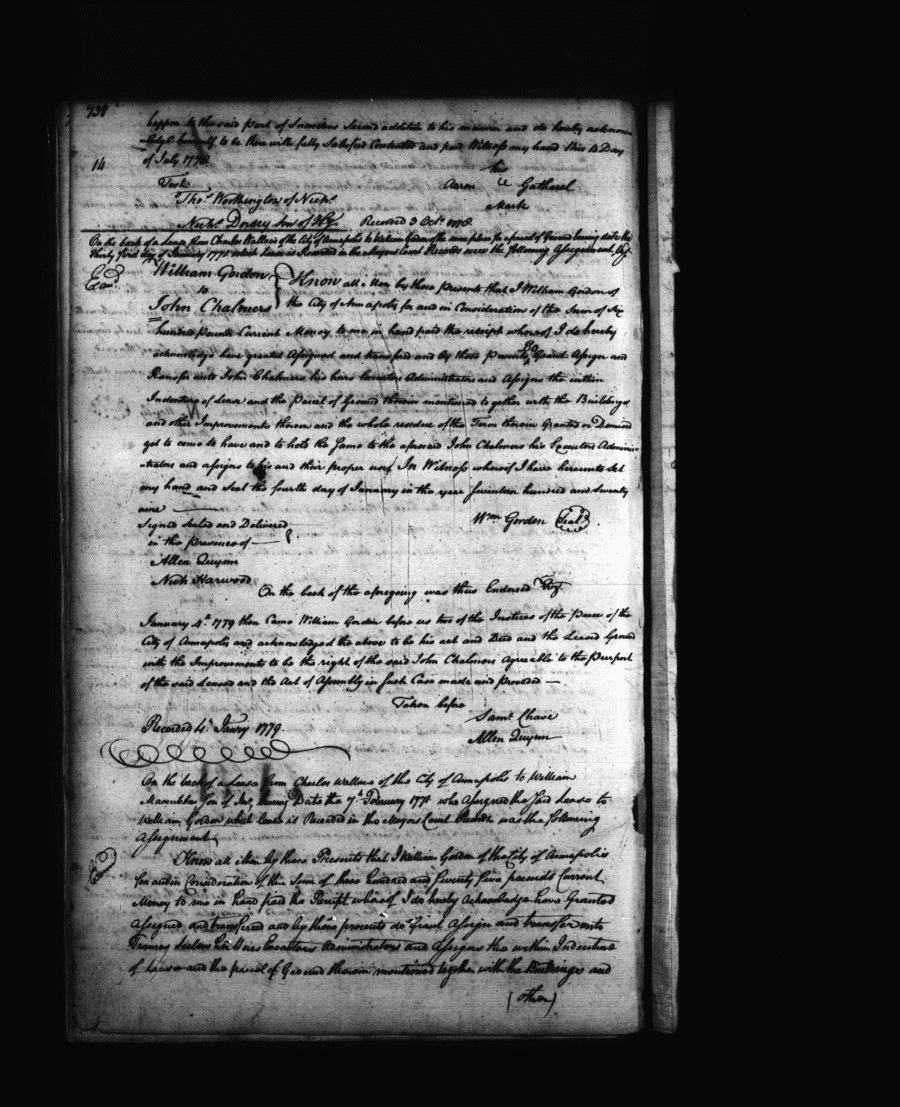 738
happen to the said part of Snowdens Second addition to his manner and do hereby acknow
ledge himself to be therewith fully Satisfied Contented and paid Witness my hand this 14 Day
14
of July 1778
Test
his
Aaron Gatherel
Mark
Thos. Worthington of Nichs.
Nichs. Dorsey Son of Hy. Recorded 3 Octr. 1778
On the back of a Lease from Charles Wallace of the City of Annapolis to William Gordon of the same place for a parcel of Ground bearing date the
thirty first day of January 1771 which Lease is Recorded in the Mayors Court Records were the following Assignment Viz.
Examd.
William Gordon
to
John Chalmers
Know all Men by these Presents that I William Gordon of
the City of Annapolis for and in Consideration of the Sum of Six
hundred Pounds Current Money to me in hand paid the receipt whereof I do hereby
acknowledge have granted Assigned and transfered and by these Presents Do Grant Assign and
Transfer unto John Chalmers his heirs Executors Administrators and Assigns the within
Indenture of Lease and the Parcel of Ground therein mentioned together with the Buildings
and other Improvements thereon and the whole residue of the Term therein Granted or Demised
yet to come to have and to hold the Same to the aforesaid John Chalmers his Executors Adminis-
trators and assigns to his and their proper use. In Witness whereof I have hereunto set
my hand and Seal this fourth day of January in the year Seventeen hundred and Seventy
nine
Signed Sealed and Delivered
in the Presence of
Wm Gordon Seal
Allen Quynn
Nich Harwood
On the back of the aforegoing was thus Endorsed Viz.
January 4th. 1779 then Came William Gordon before us two of the Justices of the Peace of the
City of Annapolis and acknowledged the above to be his act and Deed and the Leased Ground
with the Improvements to be the right of the said John Chalmers Agreeable to the Purport
of the said Leased and the Act of Assembly in such Case made and provided
Taken before
Saml. Chase
Allen Quynn
Recorded 4th. Janry 1779.
On the back of a Lease from Charles Wallace of the City of Annapolis to William
Maccubbin Son of bearing Date the 7th. February 1771 who Assigned the said Lease to
William Gordon which lease is Recorded in the Mayors Court Records was the following
Assignment
Examd.
Know all Men by these Presents that I William Gordon of the City of Annapolis
for and in Consideration of the Sum of three hundred and Seventy five pounds Current
Money to me in hand paid the Receipt whereof I do hereby Acknowledge have Granted
assigned and transfered and by these presents do Grant Assign and transfer unto
Thomas his Heirs Executors Administrators and Assigns the within Indenture
of Lease and the parcel of Ground therein mentioned together with the Buildings and
(other)